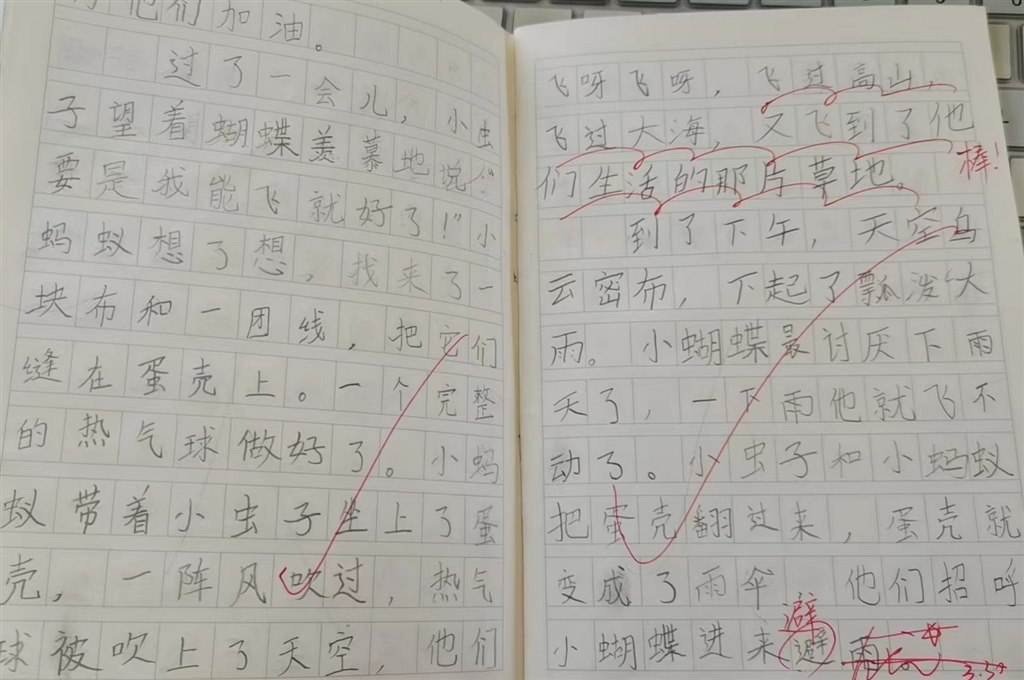 们加油。
过了一会儿，小虫
子望着蝴蝶羡慕地说：“
要是我能飞就好了！”小
蚂蚁想了想，找来了一
块布和一团线，把它们
缝在蛋壳上。一个完整
的热气球做好了。小蚂
蚁带着小虫子坐上了蛋
壳，一阵风吹过，热气
球被吹上了天空，他们
飞呀飞呀，飞过高山，
飞过大海，又飞到了他
们生活的那片草地。
棒！
到了下午，天空乌
云密布，下起了瓢泼大
雨。小蝴蝶最讨厌下雨
天了，一下雨他就飞不
动了。小虫子和小蚂蚁
把蛋壳翻过来，蛋壳就
变成了雨伞　他们招呼
避
小蝴蝶进来避雨。
3.34